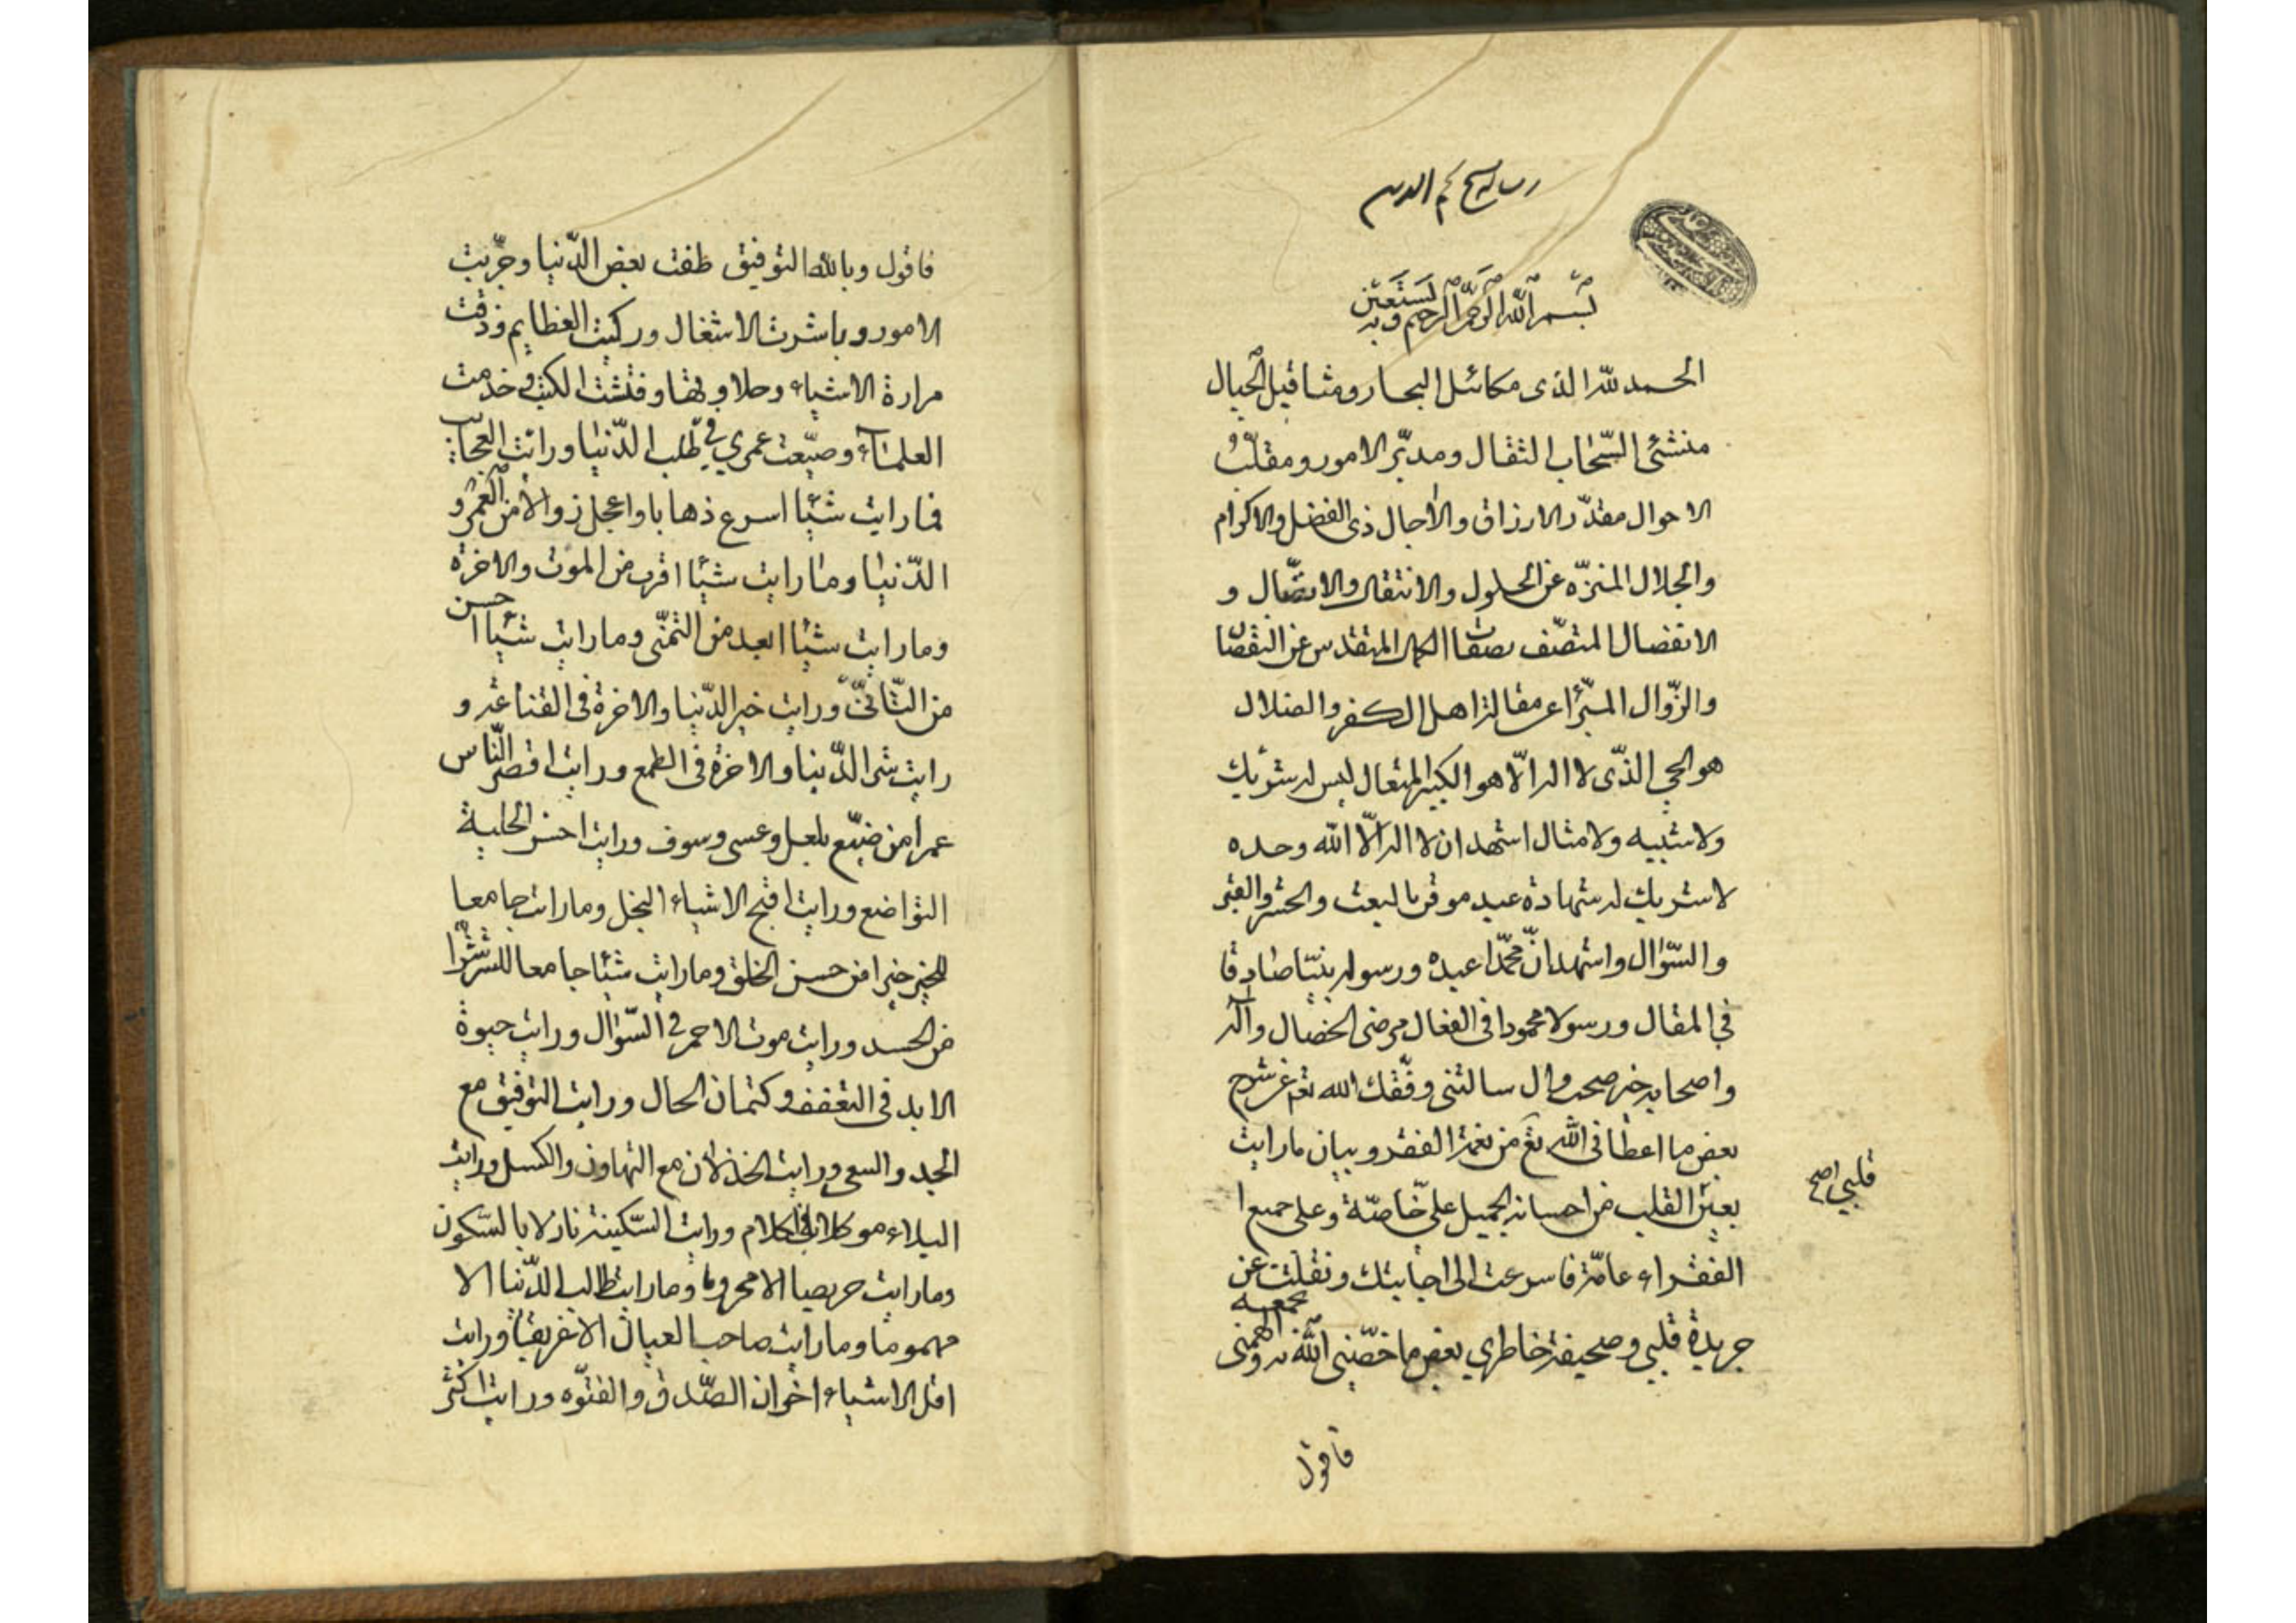 رساله شيخ نجم الدين
بسم الله الرحمن الرحيم وبه نستعين
الحمد لله الذى مكائل البحار ومثاقيل الجبال
منشئ السّحاب الثقال ومدبّر الامور ومقلّب
الاحوال مقدّر الارزاق والآجال ذى الفضل والاكرام
والجلال المنزّه عن الحلول والانتقال والاتصّال و
الانفصال المتصّف بصفات الكمال المتقدس عن النقصان
والزّوال المبّرأ عن مقالة اهل الكفر والضلال
هو الحي الذّى لا اله الّا هو الكبير المتعال ليس له شريك
ولا شبيه ولا مثال اشهد ان لا اله الّا الله وحده
لا شريك له شهادة عبد موقن بالبعث والحشر والقبر
والسّؤال واشهد انّ محمّدا عبده ورسوله نبيّا صادقا
في المقال ورسولا محمودا فى الفعال مرضى الخصال وآله
واصحابه خير صحب وال سالتنى وفّقك الله تعم عن شرح
بعض ما اعطانى الله تع من نعمة الفقر وبيان ما رايت
بعين القلب من احسانه الجميل علىّ خاصّة وعلى جميع ا
الفقراء عامّة فاسرعت الى اجابتك ونقلت عن
جريدة قلبي وصحيفة خاطري بعض ما خصّنى الله به والهمنى
بجمعيه
قلبي اصح
فاقول
فاقول وبالله التوفيق طفت بعض الدّنيا وجرّبت
الامور وباشرت الاشغال وركبت العظايم وذقت
مرارة الاشياء وحلاوتها وفتشت الكتب وخدمت
العلمآء وضيّعت عمري في طلب الدّنيا ورايت العجايب
فما رايت شيئا اسرع ذهابا واعجل زوالا من العمر و
الدّنيا وما رايت شيئا اقرب من الموت والاخرة
وما رايت شيئا ابعد من التمنّى وما رايت شيئا احسن
من التّانّى ورايت خير الدّنيا والاخرة فى القناعة و
رايت شر الدّنيا والاخرة فى الطمع ورايت اقصر النّاس
عمرا من ضيّع بلعل وعسى وسوف ورايت احسن الحلية
التواضع ورايت اقبح الاشياء البخل وما رايت جامعا
للخير خيرا من حسن الخلق وما رايت شيئا جامعا للشر شرّا
من الحسد ورايت موت الاحمر في السّؤال ورايت حيوة
الابد فى التعفف وكتمان الحال ورايت التوفيق مع
الجد والسعى ورايت الخذلان مع التهاون والكسل ورايت
البلاء موكلا بالكلام ورايت السّكينة نازلا بالسّكون
وما رايت حريصا الا محروما وما رايت طالب الدّنيا الا
مهموما وما رايت صاحب العيال الا غريقا ورايت
اقل الاشياء اخوان الصّدق والفتوّه ورايت اكثر